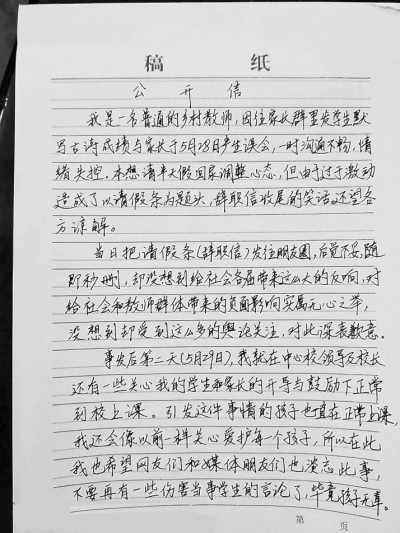 稿 纸
公开信
我是一名普通的乡村教师,因往家长群里发学生默
写古诗成绩与家长于5月28日产生误会,一时沟通不畅,情
绪失控。本想请半天假回家调整心态,但由于过于激动
造成了以请假条为题头,辞职信收尾的笑话。还望各
方谅解。
当日把请假条(辞职信)发往朋友圈,后觉不妥,随
即秒删,却没想到给社会各届带来这么大的反响,对
给社会和教师群体带来的负面影响实属无心之举,
没想到却受到这么多的舆论关注,对此深表歉意。
事发后第二天(5月29日),我就在中心校领导及校长
还有一些关心我的学生和家长的开导与鼓励下正常
到校上课。引发这件事情的孩子也一直在正常上课,
我还会像以前一样关心爱护每个孩子,所以在此
我也希望网友们和媒体朋友们也淡忘此事,
不要再有一些伤害当事学生的言论了,毕竟孩子无辜。
第 页